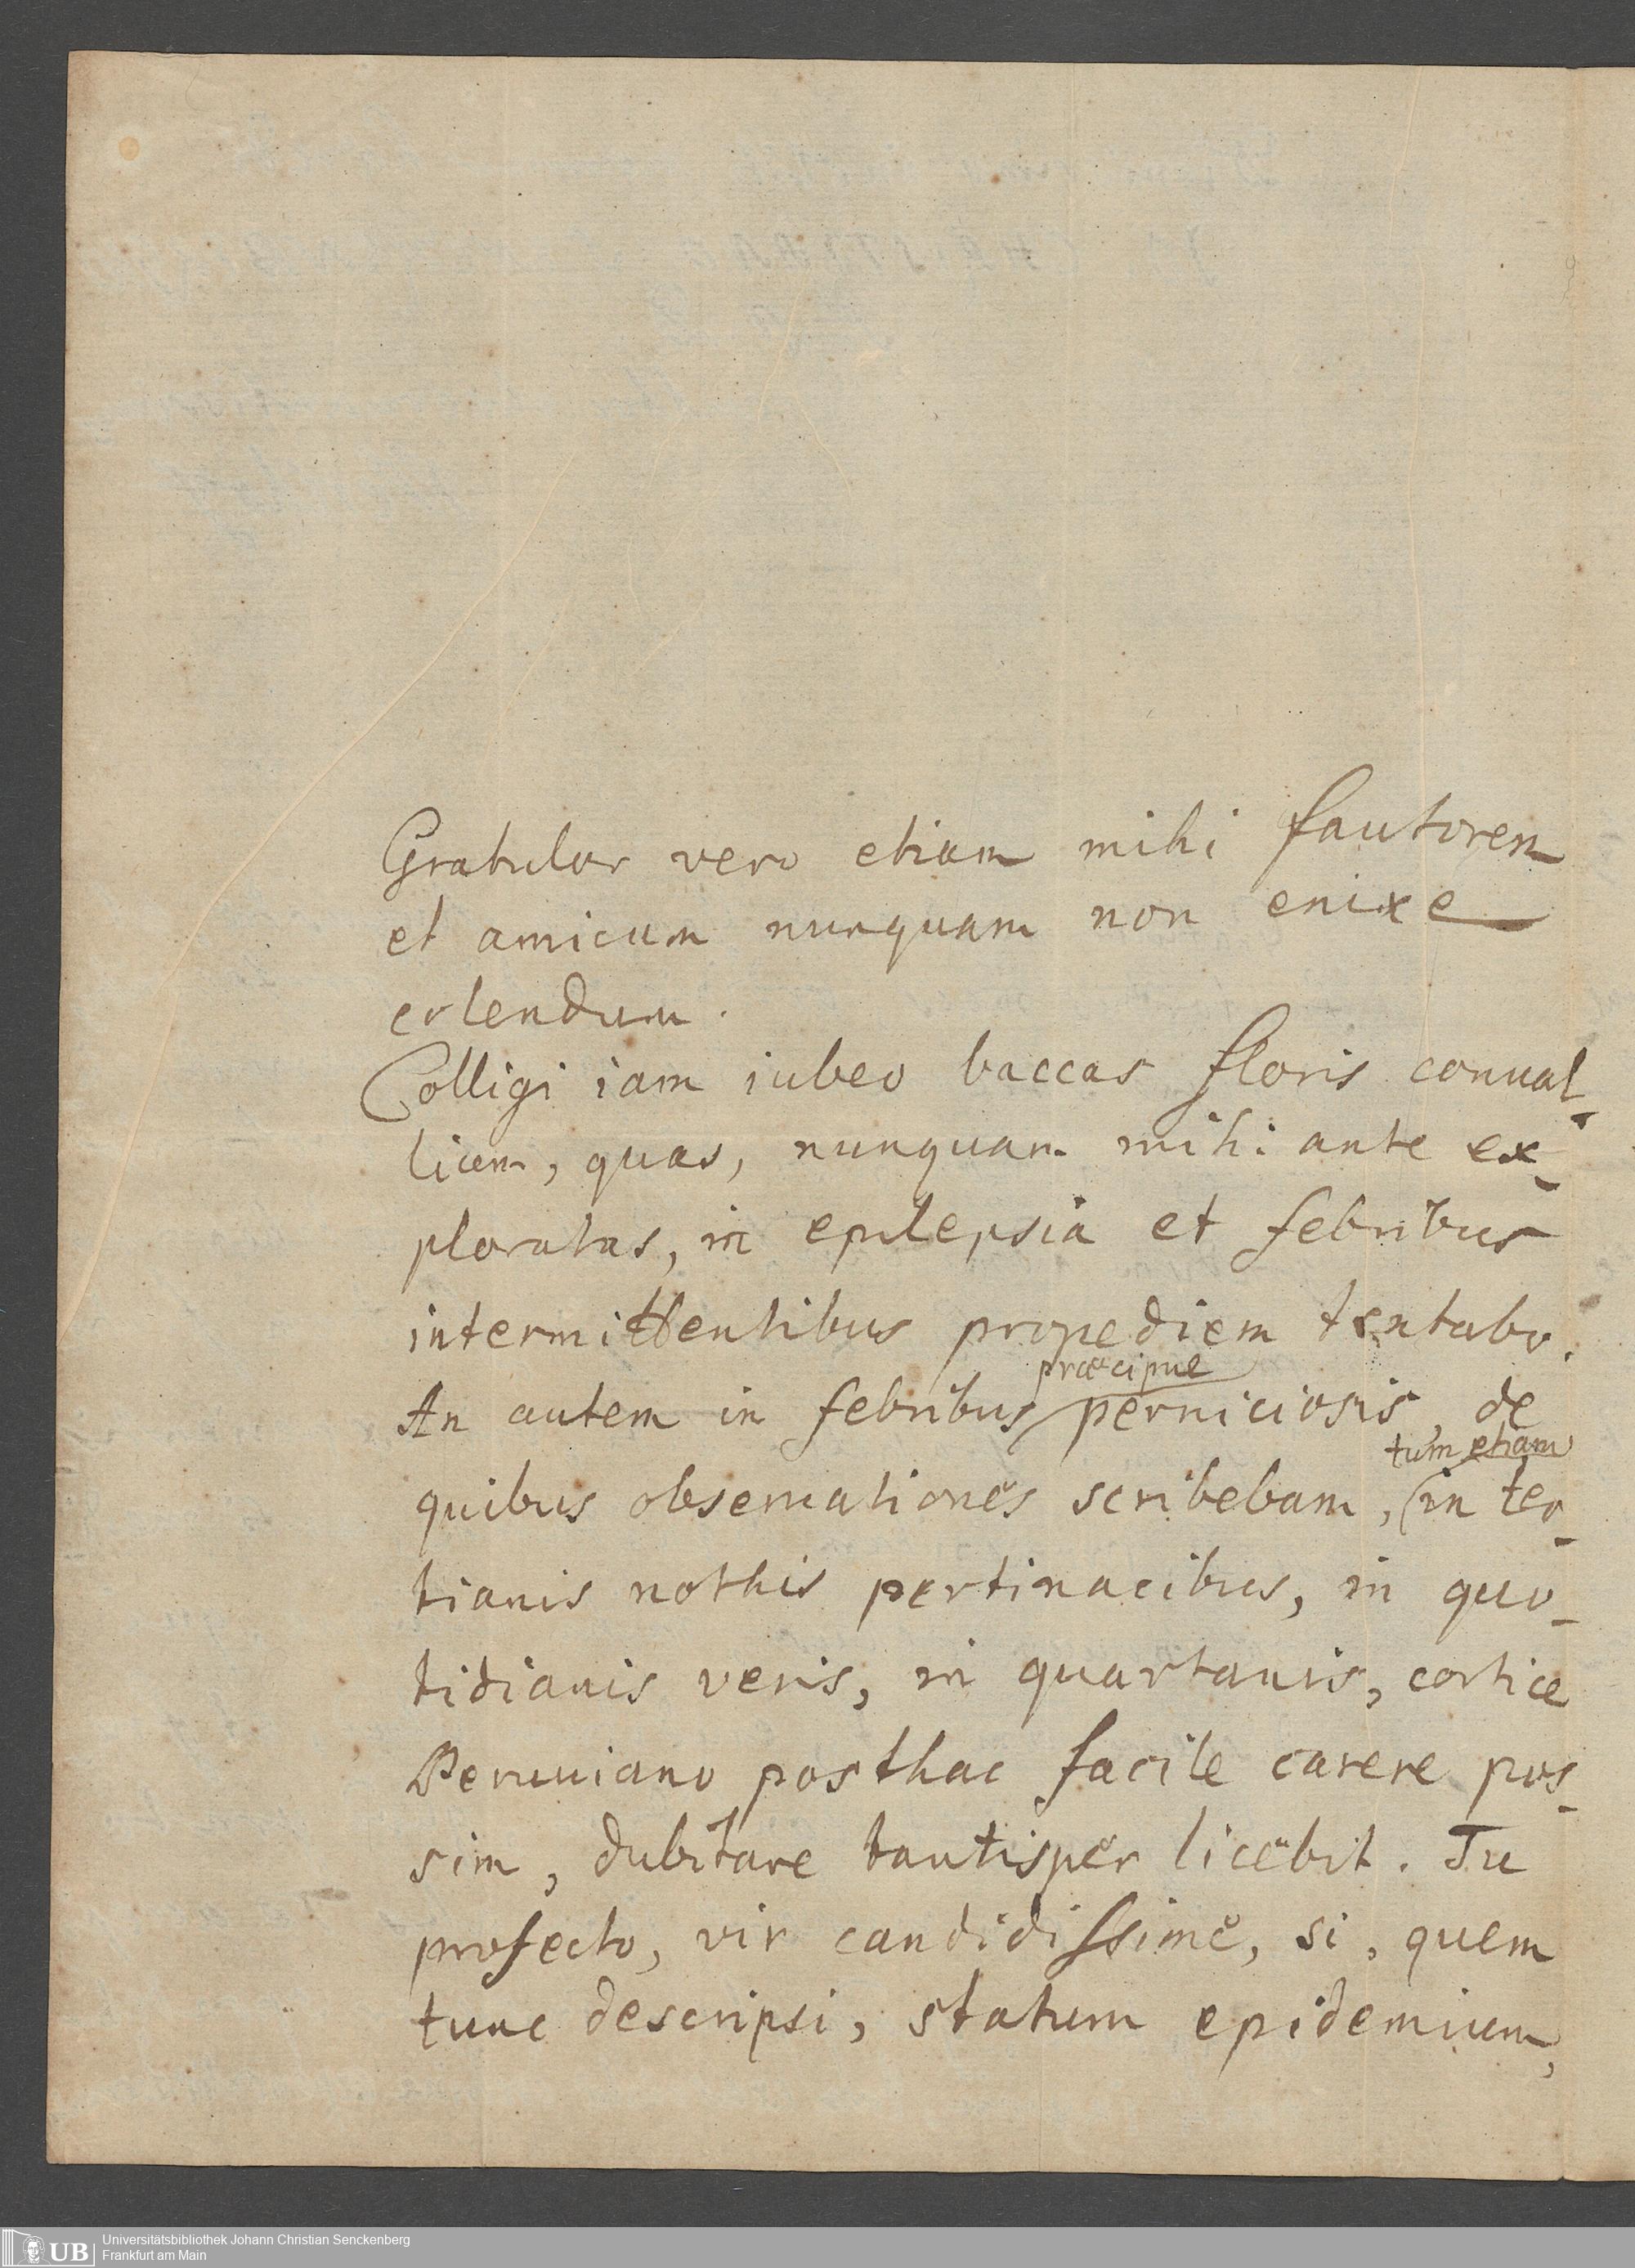 Gratulor vero etiam mihi fautorem
et amicum nunquam non enixe
colendum.
Colligi iam iubeo baccas floris conual-
lium, quas, nunquam mihi ante ex-
ploratas, in epilepsia et febribus
intermittentibus propediem tentabo.
praecipue
An autem in febribus perniciosis, de
tum etiam
quibus obseruationes scribebam, in ter-
tianis nothis pertinacibus, in quo-
tidianis veris, in quartanis, cortice
Peruuiano posthac facile carere pos-
sim, dubitare tantisper licebit. Tu
profecto, vir candidissime, si, quem
tunc descripsi, statum epidemium,
UB
Universitätsbibliothek Johann Christian Senckenberg
Frankfurt am Main